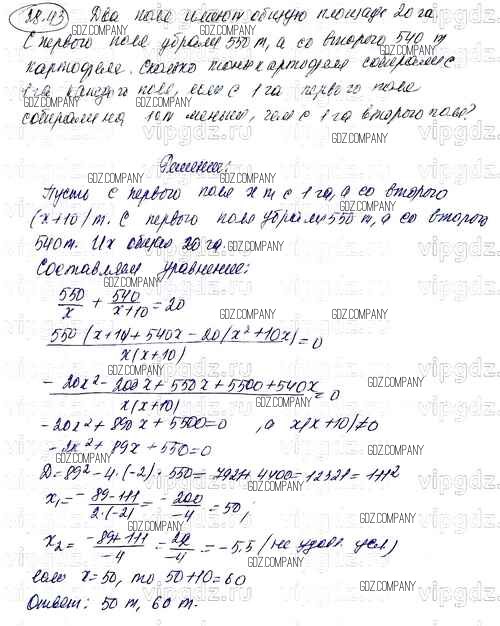 28.43 Два поля имеют общую площадь 20 га.
С первого поля убрали 550 т, а со второго 540 т
картофеля. Сколько тонн картофеля собирали с
1 га каждого поля, если с 1 га первого поля
собирали на 10 т меньше, чем с 1 га второго поля?
Решение:
Пусть с первого поля x т с 1 га, а со второго
(x+10) т. С первого поля убрали 550 т, а со второго
540 т. Их общая 20 га.
Составляем уравнение:
550/x + 540/(x+10) = 20
(550(x+10)+540x-20(x²+10x))/(x(x+10)) = 0
(-20x²-200x+550x+5500+540x)/(x(x+10)) = 0
-20x²+890x+5500=0, а x(x+10)≠0
-2x²+89x+550=0
D=89²-4·(-2)·550=7921+4400=12321=111²
x₁=(-89-111)/(2·(-2))=(-200)/(-4)=50;
x₂=(-89+111)/(-4)=22/(-4)=-5,5 (не удовл. усл.)
если x=50, то 50+10=60
Ответ: 50 т, 60 т.
GDZ.COMPANY
vipgdz.ru